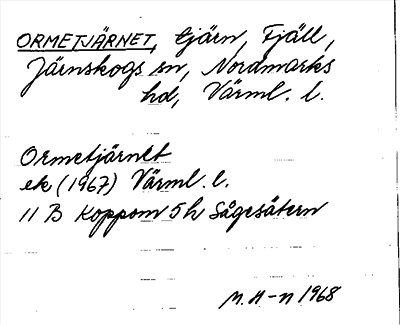 ORMETJÄRNET, tjärn, Fjäll,
Järnskogs sn, Nordmarks
hd, Värml. l.
Ormetjärnet
ek (1967) Värml. l.
11 B Koppom 5 h Sågesätern
M. H-n 1968